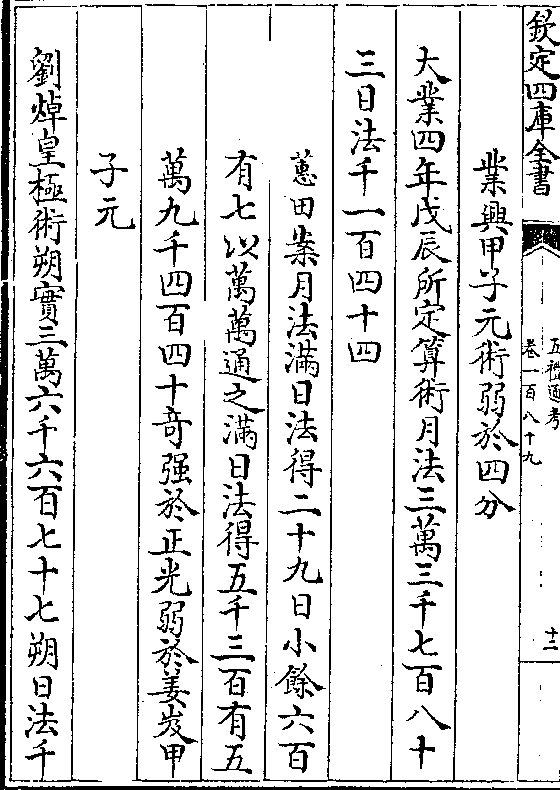 欽定四庫全書
五禮通考
卷一百八十九
十二
業興甲子元術弱於四分
大業四年戊辰所定算術月法三萬三千七百八十
三日法千一百四十四
蕙田案月法滿日法得二十九日小餘六百
有七以萬萬通之滿日法得五千三百有五
萬九千四百四十奇强於正光弱於姜岌甲
子元
劉焯皇極術朔實三萬六千六百七十七朔日法千